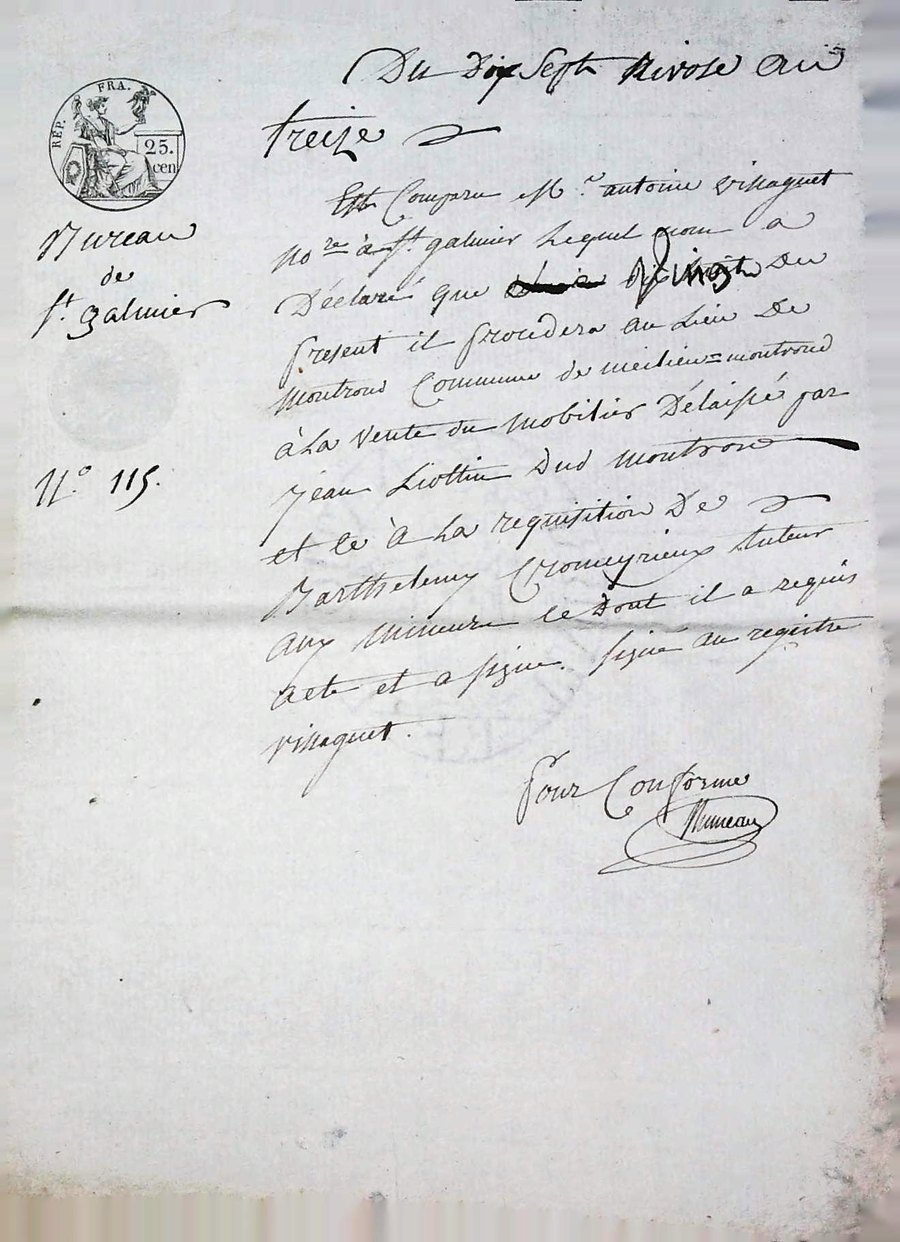 RÉP. FRA.
25.
cen
Bureau
de
St. galmier
N.° 115.
Du Dix Sept Nivose an
treize
Est Comparu M.r antoine vissaguet
No.re à St. galmier Lequel nom a
Déclaré que vingt Du
present il procedera au Lieu De
montrond Commune de meilieu=montrond
à La vente du mobilier Délaissé par
jean Liottin Dud montrond
et ce à La requisition De
Barthelemy Cromeyrieux tuteur
aux mineurs ce Dont il a requis
acte et a signé. signé au registre
vissaguet.
Pour Conforme